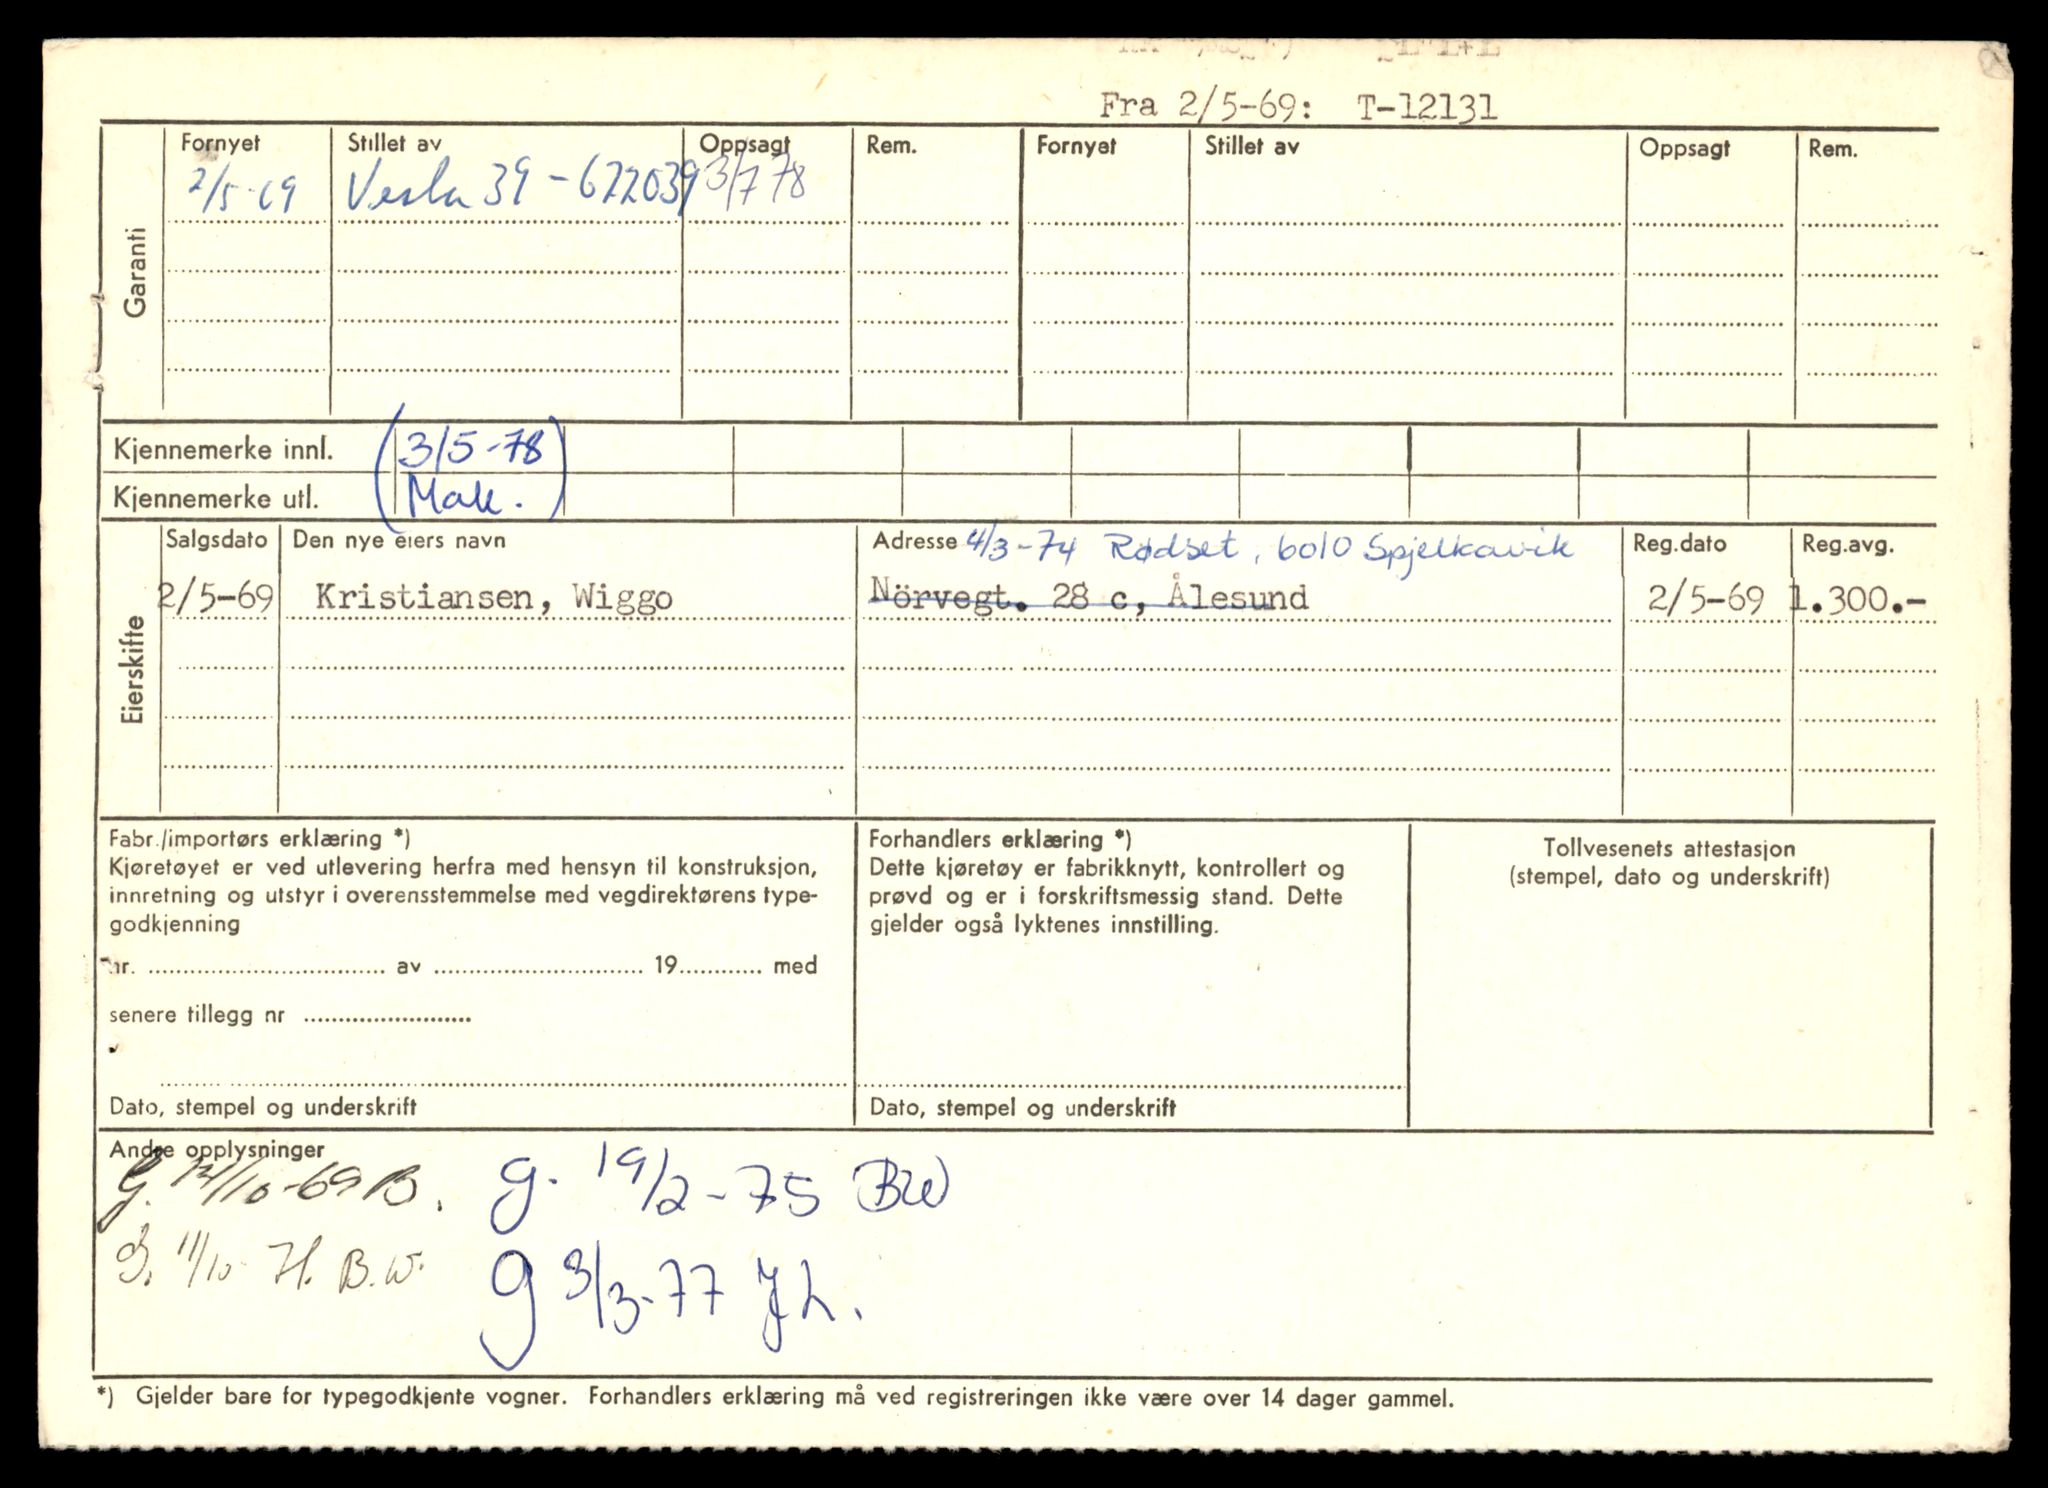 Fra 2/5-69: T-12131
Garanti
Fornyet Stillet av Oppsagt Rem. Fornyet Stillet av Oppsagt Rem.
2/5-69 Vesta 39 - 622039 3/7 78
Kjennemerke innl. (3/5-78
Kjennemerke utl. Mak.)
Eierskifte
Salgsdato Den nye eiers navn Adresse 4/3-74 Rødset, 6010 Spjelkavik Reg.dato Reg.avg.
2/5-69 Kristiansen, Wiggo Nörvegt. 28 c, Ålesund 2/5-69 1.300.-
Fabr./importørs erklæring *)
Kjøretøyet er ved utlevering herfra med hensyn til konstruksjon,
innretning og utstyr i overensstemmelse med vegdirektørens type-
godkjenning
nr. .................................. av .............................. 19............ med
senere tillegg nr ........................
Dato, stempel og underskrift
Forhandlers erklæring *)
Dette kjøretøy er fabrikknytt, kontrollert og
prøvd og er i forskriftsmessig stand. Dette
gjelder også lyktenes innstilling.
Dato, stempel og underskrift
Tollvesenets attestasjon
(stempel, dato og underskrift)
Andre opplysninger
G. /10-69 B. g. 19/2-75 BW
G. 11/10 B.W. g 3/3-77 JL.
*) Gjelder bare for typegodkjente vogner. Forhandlers erklæring må ved registreringen ikke være over 14 dager gammel.